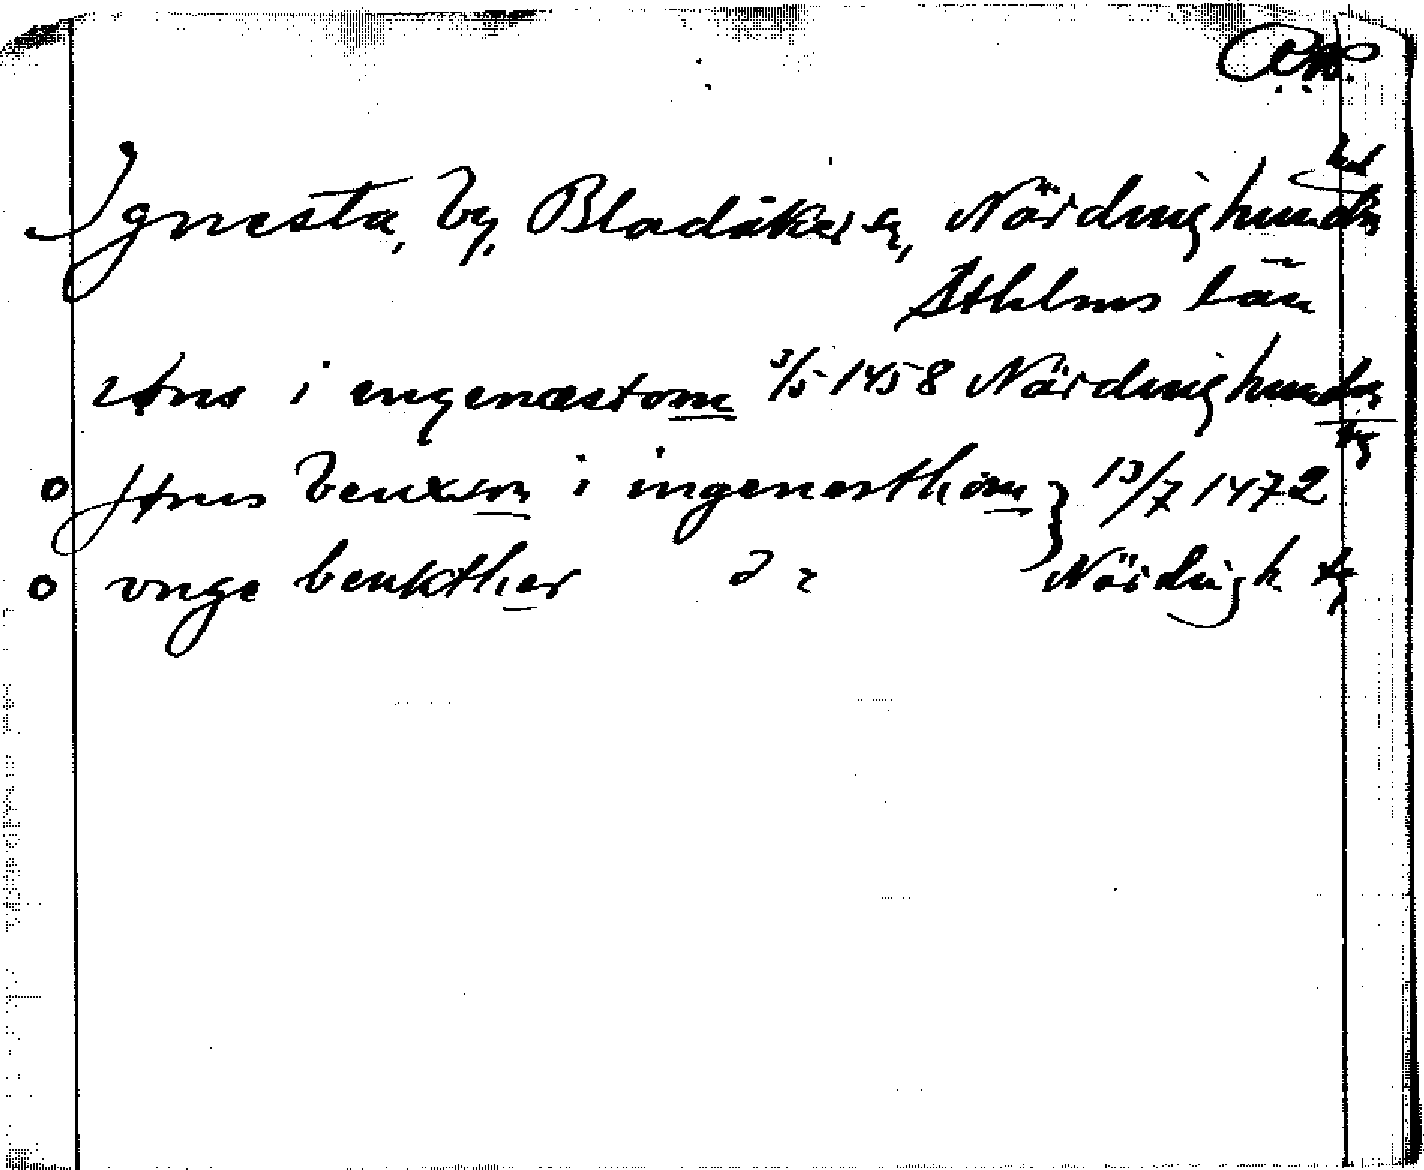 Ignesta, by, Bladåker sn, Närdinghundra hd
Sthlms län
jøns i engenæstom 3/5 1458 Närdinghundra tg
o jøns benxson i ingenesthom } 13/7 1472
o vnge benkther d:o Närdingh tg